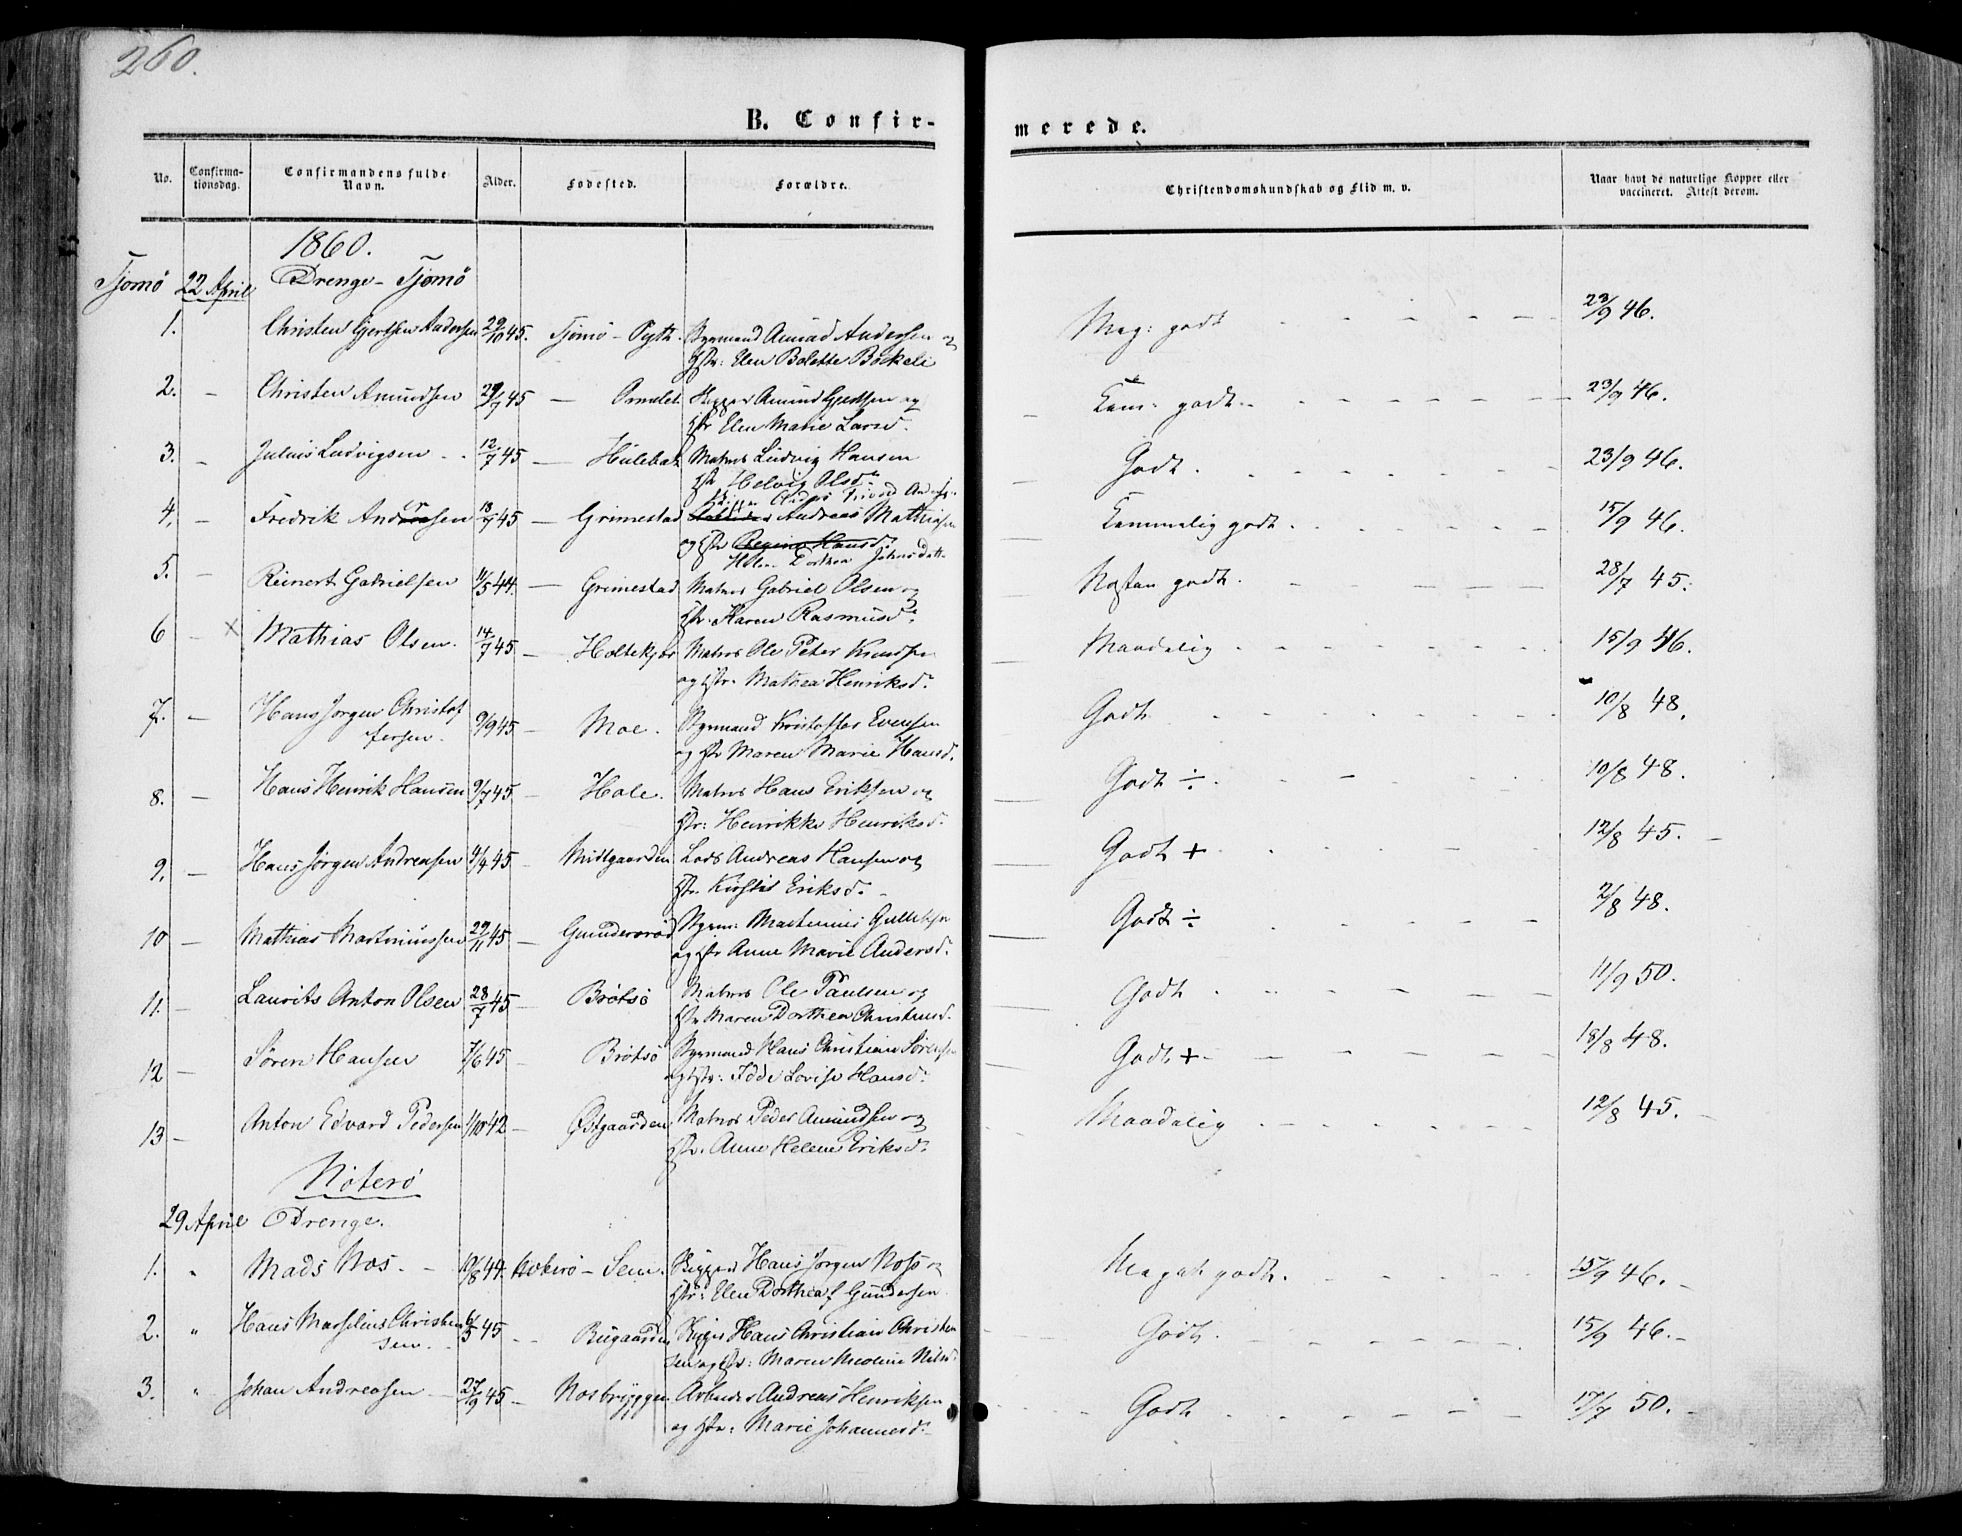 260.
B. Confir-
merede.
No.
Confirma-
tionsdag.
Confirmandens fulde
Navn.
Alder.
Fødested.
Forældre.
Christendomskundskab og Flid m. v.
Naar havt de naturlige Kopper eller
vaccineret. Attest derom.
1860.
Tjømø 22 April Drenge - Tjømø
1. Christen Gjertsen Andersen 29/10 45. Tjømø - Amund Andersen og Meg: godt 23/9 46.
Hstr: Elen Bolette
2. - Christen Amundsen 29/7 45 - Ormelet Amund Gjertsen og Tem: godt 23/9 46.
Hstr Elen Marie Larsd.
3. - Julius Ludvigsen 12/7 45 - Hulebak Matros Ludvig Hansen Godt 23/9 46.
Hstr Helvig Olsd.
4. - Fredrik Andersen 18/7 45 - Grimestad Andreas Mathiasen Temmelig godt 15/9 46.
og Hstr Regine Hansd.
Dorthea Johnsdatt
5. - Reinert Gabrielsen 11/5 44. - Grimestad Matros Gabriel Olsen og Næsten godt. 28/7 45.
Hstr. Karen Rasmusd.
6 - x Mathias Olsen. 14/7 45 - Holtekjær Matros Ole Peter Knudsen Maadelig 15/9 46.
og Hstr. Mathea Henriksd.
7. - Hans Jørgen Christof 9/9 45 - Moe. Styrmand Kristoffer Evensen Godt 10/8 48.
fersen. og Hstr Maren Marie Hansd.
8. - Hans Henrik Hansen 9/7 45 - Hole. Matros Hans Eriksen og Godt ÷ 10/8 48.
Hstr: Henrikke Henriksd.
9. - Hans Jørgen Andreasen 45 - Midtgaarden Lods Andreas Hansen og Godt + 12/8 45.
Hstr. Kirstie Eriksd.
10 - Mathias Martiniussen 29/11 45 - Gunderød Styrm: Martinius Gulliksen Godt ÷ 2/8 48.
og Hstr Anne Marie Andersd.
11. - Laurits Anton Olsen 28/7 45 - Brøtsø Matros Ole Paulsen og Godt 11/9 50.
Hstr Maren Dorthea
12 - Søren Hansen 7/6 45 - Brøtsø Styrmand Hans Christian Sørensen Godt + 18/8 48.
og Hstr: Lovise Hansd.
13 - Anton Edvard Pedersen 1/10 42 - Østgaarden Matros Peder Amundsen og Maadelig 12/8 45.
Hstr. Anne Helene Eriksd.
Nøterø
29 April Drenge.
1. " Mads Nøs. 19/8 44. Nøterø - Sem. Skipper Hans Jørgen og Meget godt. 15/9 46.
Hstr: Elen Dorthea f Gundersen.
2. " Hans Marselius Christen 6/5 45 - Bugaarden Hans Christian Christen Godt. 15/9 46.
sen. sen og Hstr: Maren Nicoline Nilsd.
3. " Johan Andreasen 27/9 45 - Nøsbryggen Andreas Henriksen Godt 17/7 50.
og Hstr: Marie Johannesd.